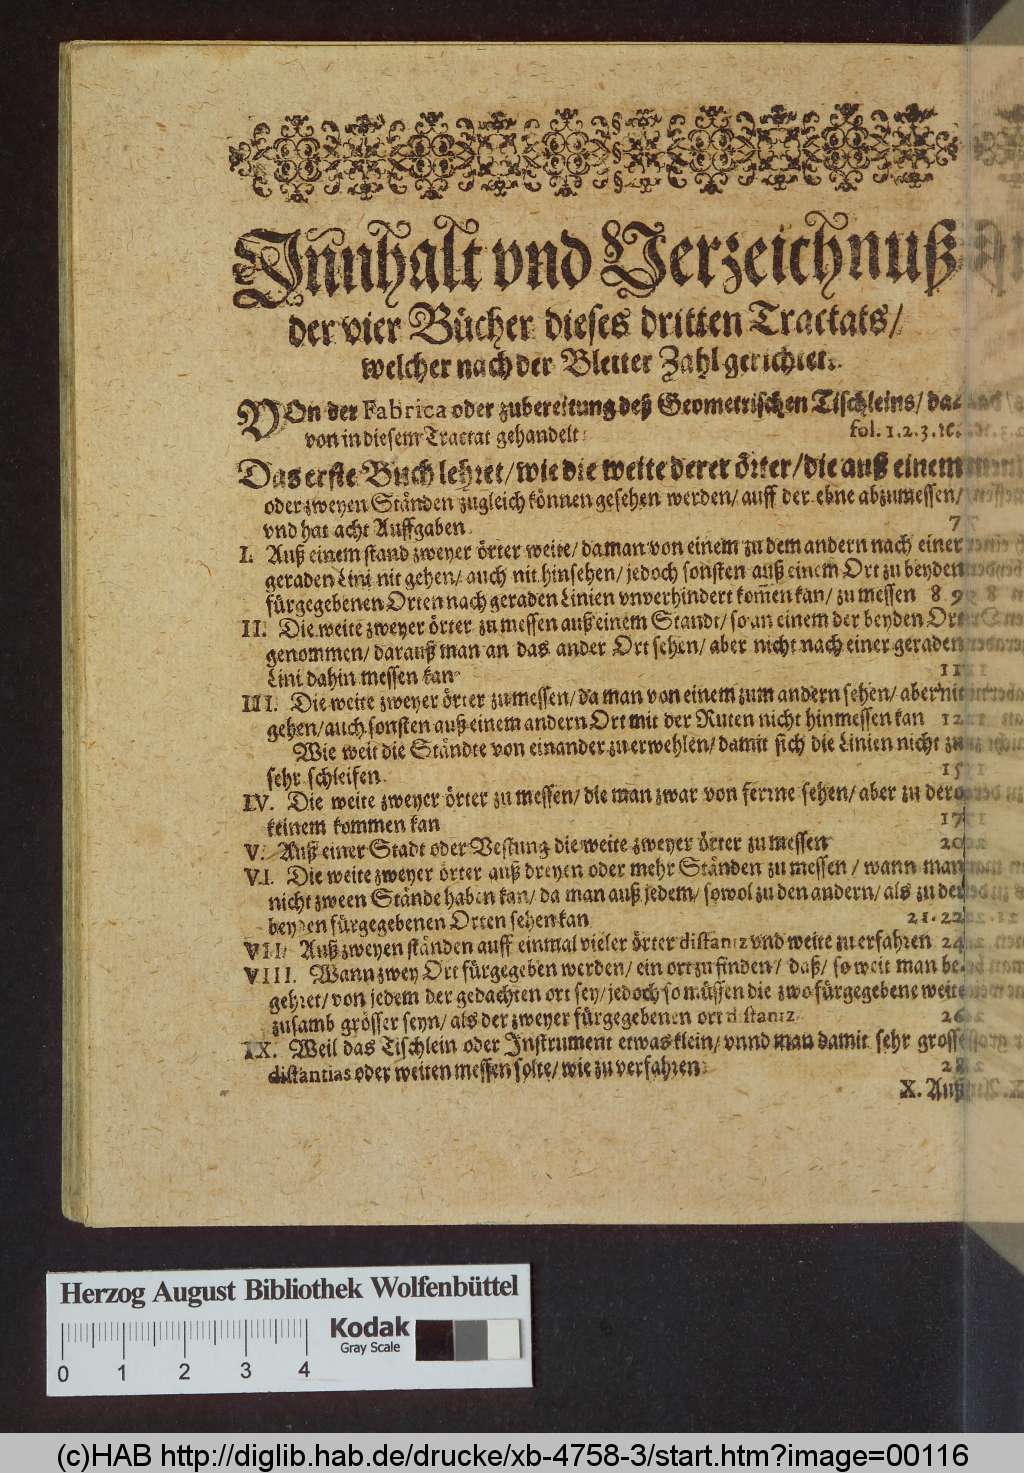 Innhalt vnd Verzeichnuß
der vier Bücher dieses dritten Tractats/
welcher nach der Bletter Zahl gerichtet.
VOn der Fabrica oder zubereitung deß Geometrischen Tischleins/ da-
von in diesem Tractat gehandelt. fol. 1. 2. 3. ꝛc.
Das erste Buch lehret/ wie die weite derer örter/ die auß einem
oder zweyen Ständen zugleich können gesehen werden/ auff der ebne abzumessen/
vnd hat acht Auffgaben. 7
I. Auß einem stand zweyer örter weite/ da man von einem zu dem andern nach einer
geraden Lini nit gehen/ auch nit hinsehen/ jedoch sonsten auß einem Ort zu beyden
fürgegebenen Orten nach geraden Linien vnverhindert kom̃en kan/ zu messen 8 9
II. Die weite zweyer örter zu messen auß einem Standt/ so an einem der beyden Ort
genommen/ darauß man an das ander Ort sehen/ aber nicht nach einer geraden
Lini dahin messen kan 11
III. Die weite zweyer örter zu messen/ da man von einem zum andern sehen/ aber nit
gehen/ auch sonsten auß einem andern Ort mit der Ruten nicht hinmessen kan 12
Wie weit die Ständte von einander zu erwehlen/ damit sich die Linien nicht zu
sehr schleifen. 15
IV. Die weite zweyer örter zu messen/ die man zwar von ferrne sehen/ aber zu dero
keinem kommen kan 17
V. Auß einer Stadt oder Vestung die weite zweyer örter zu messen 20
VI. Die weite zweyer örter auß dreyen oder mehr Ständen zu messen / wann man
nicht zween Stände haben kan/ da man auß jedem/ sowol zu den andern/ als zu den
beyden fürgegebenen Orten sehen kan 21. 22
VII. Auß zweyen ständen auff einmal vieler örter distantz vnd weite zu erfahren 24
VIII. Wann zwey Ort fürgegeben werden/ ein ort zu finden/ daß/ so weit man be-
gehret/ von jedem der gedachten ort sey/ jedoch so müssen die zwo fürgegebene weite
zusamb grösser seyn/ als der zweyer fürgegebenen ort distantz. 26
IX. Weil das Tischlein oder Instrument etwas klein/ vnnd man damit sehr grosse
distantias oder weiten messen solte/ wie zu verfahren. 28
X. Auß
Herzog August Bibliothek Wolfenbüttel
Kodak
Gray Scale
0 1 2 3 4
(c)HAB http://diglib.hab.de/drucke/xb-4758-3/start.htm?image=00116